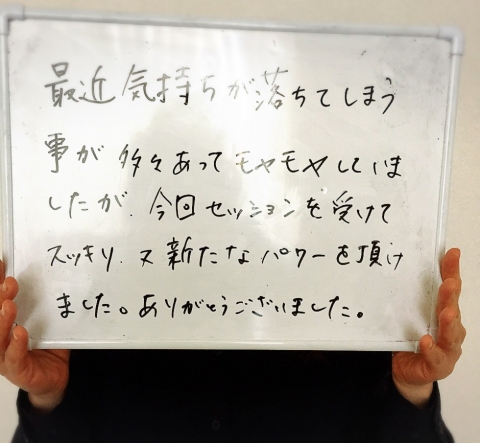 最近気持ちが落ちてしまう
事が多々あってモヤモヤしていま
したが、今回セッションを受けて
スッキリ、又新たなパワーを頂け
ました。ありがとうございました。